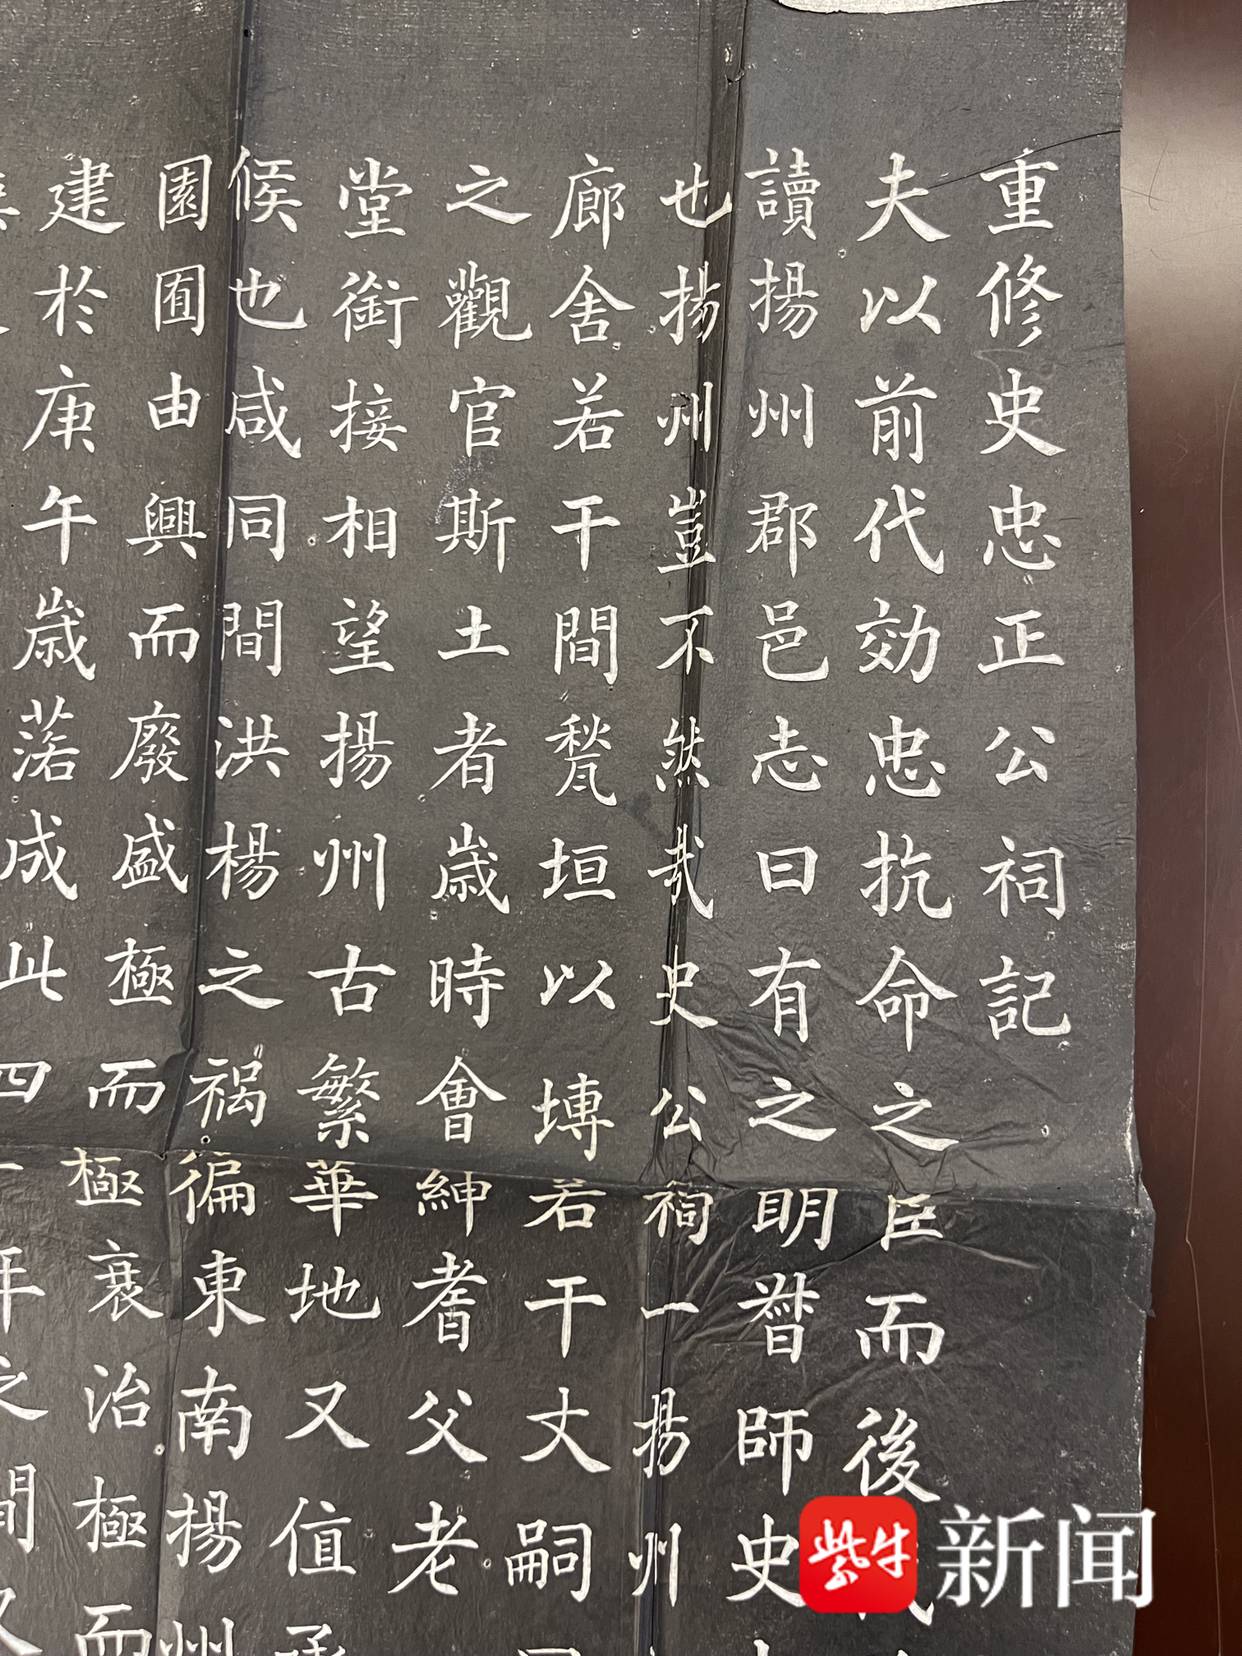 重修史忠正公祠記
夫以前代効忠抗命之臣而後
讀揚州郡邑志曰有之明督師史
也揚州豈不然哉史公祠一揚州
廊舍若干間甃垣以塼若干丈嗣
之觀官斯土者歲時會紳耆父老
堂衙接相望揚州古繁華地又值承
候也咸同間洪楊之禍徧東南揚州
園囿由興而廢盛極而極衰治極而
建於庚午歲落成此四
年之間
紫牛新闻